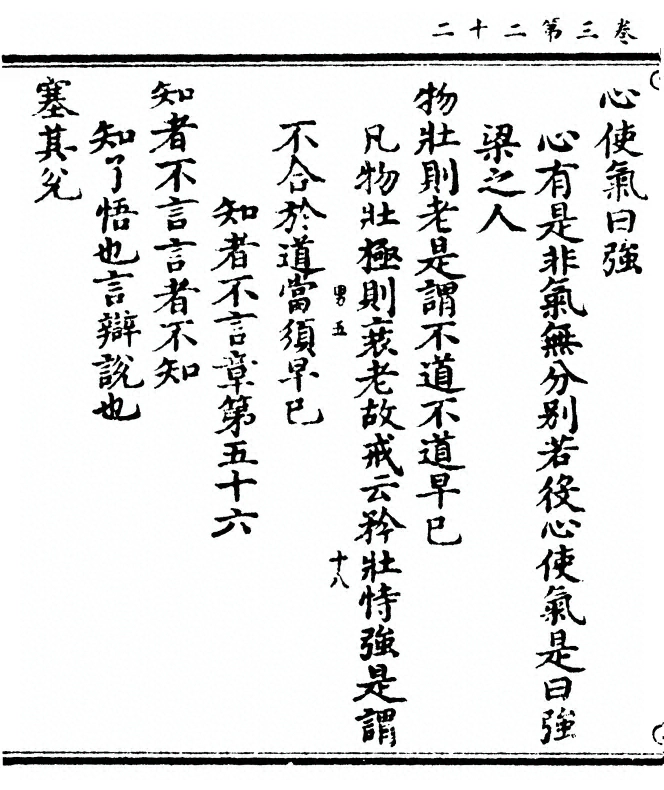 卷三第二十二
心使氣曰強
心有是非氣無分别若役心使氣是曰強
梁之人
物壯則老是謂不道不道早已
凡物壯極則衰老故戒云矜壯恃強是謂
男五
十八
不合於道當須早已
知者不言章第五十六
知者不言言者不知
知了悟也言辯說也
塞其兌